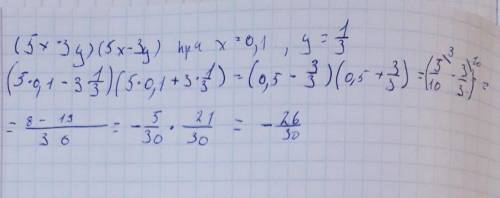 (5x-3y)(5x-3y) при x=0,1 , y=1/3
(5·0,1-3 1/3)(5·0,1+3·1/3)=(0,5-3/3)(0,5+3/3)=(5/10-3/3)=
= 30 = -5/30 · 21/30 = -26/30